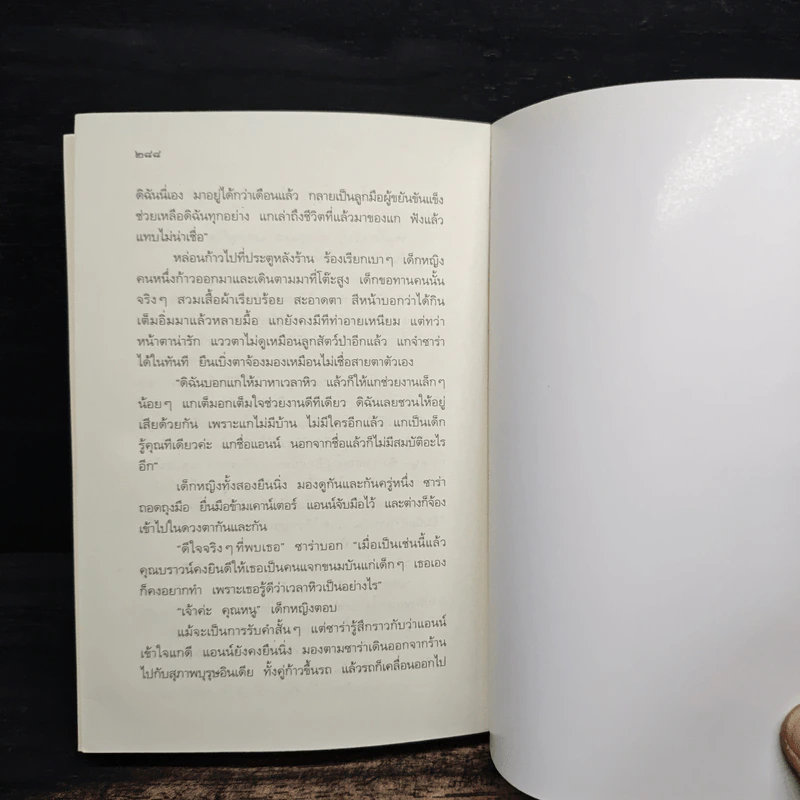 ๒๘๘
ดิฉันนี่เอง มาอยู่ได้กว่าเดือนแล้ว กลายเป็นลูกมือผู้ขยันขันแข็ง
ช่วยเหลือดิฉันทุกอย่าง แกเล่าถึงชีวิตที่แล้วมาของแก ฟังแล้ว
แทบไม่น่าเชื่อ”
หล่อนก้าวไปที่ประตูหลังร้าน ร้องเรียกเบาๆ เด็กหญิง
คนหนึ่งก้าวออกมาและเดินตามมาที่โต๊ะสูง เด็กขอทานคนนั้น
จริงๆ สวมเสื้อผ้าเรียบร้อย สะอาดตา สีหน้าบอกว่าได้กิน
เต็มอิ่มมาแล้วหลายมื้อ แกยังคงมีทีท่าอายเหนียม แต่ทว่า
หน้าตาน่ารัก แววตาไม่ดูเหมือนลูกสัตว์ป่าอีกแล้ว แกจำซาร่า
ได้ในทันที ยืนเบิ่งตาจ้องมองเหมือนไม่เชื่อสายตาตัวเอง
“ดิฉันบอกแกให้มาหาเวลาหิว แล้วก็ให้แกช่วยงานเล็กๆ
น้อยๆ แกเต็มอกเต็มใจช่วยงานดีทีเดียว ดิฉันเลยชวนให้อยู่
เสียด้วยกัน เพราะแกไม่มีบ้าน ไม่มีใครอีกแล้ว แกเป็นเด็ก
รู้คุณทีเดียวค่ะ แกชื่อแอนน์ นอกจากชื่อแล้วก็ไม่มีสมบัติอะไร
อีก”
เด็กหญิงทั้งสองยืนนิ่ง มองดูกันและกันครู่หนึ่ง ซาร่า
ถอดถุงมือ ยื่นมือข้ามเคาน์เตอร์ แอนน์จับมือไว้ และต่างก็จ้อง
เข้าไปในดวงตากันและกัน
“ดีใจจริงๆ ที่พบเธอ” ซาร่าบอก “เมื่อเป็นเช่นนี้แล้ว
คุณบราวน์คงยินดีให้เธอเป็นคนแจกขนมบันแก่เด็กๆ เธอเอง
ก็คงอยากทำ เพราะเธอรู้ดีว่าเวลาหิวเป็นอย่างไร”
“เจ้าค่ะ คุณหนู” เด็กหญิงตอบ
แม้จะเป็นการรับคำสั้นๆ แต่ซาร่ารู้สึกราวกับว่าแอนน์
เข้าใจแกดี แอนน์ยังคงยืนนิ่ง มองตามซาร่าเดินออกจากร้าน
ไปกับสุภาพบุรุษอินเดีย ทั้งคู่ก้าวขึ้นรถ แล้วรถก็เคลื่อนออกไป